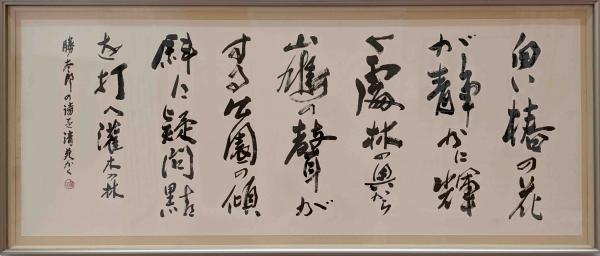 白い椿の花
が静かに輝
く處林の奥から
山鳩の聲が
する公園の傾
斜に疑問點
を打へ灌木の林
勝太郎の詩を清光かく